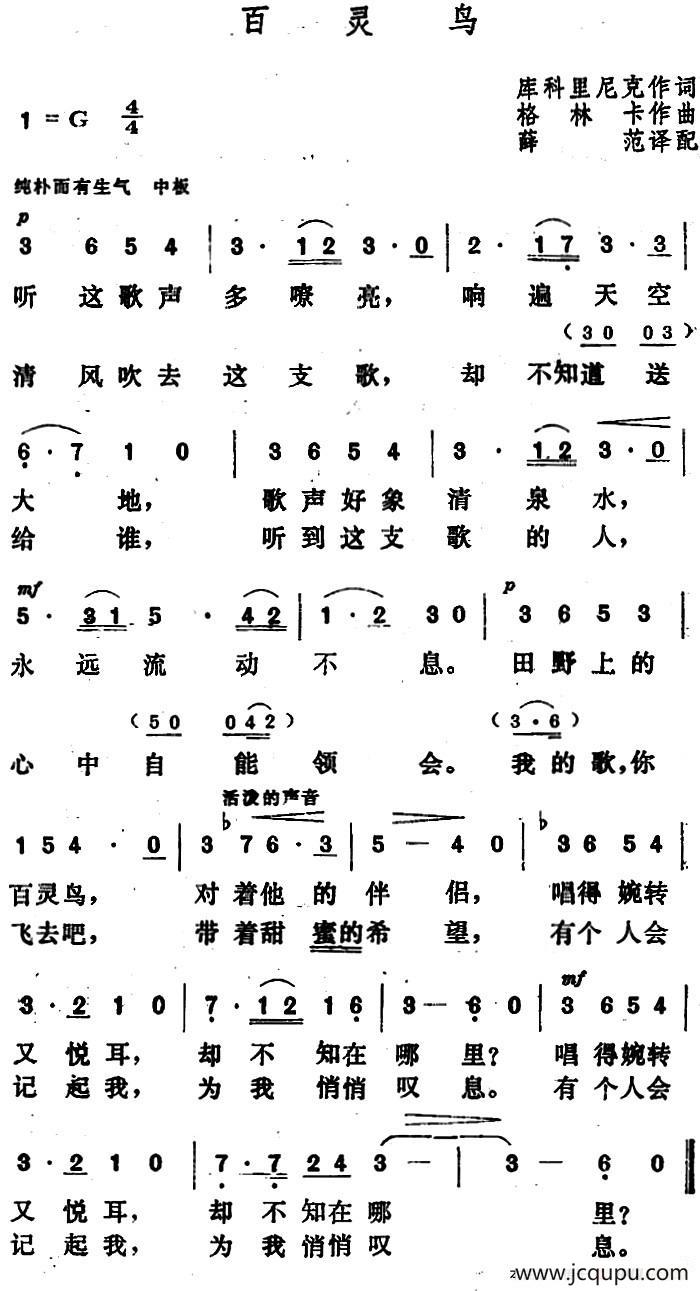 百灵鸟
库科里尼克作词
1=G 4/4 格林卡作曲
薛范译配
纯朴而有生气 中板
p
3 6 5 4 | 3 · 1 2 3 · 0 | 2 · 1 7 3 · 3 |
听这歌声多嘹亮，响遍天空
(3 0 0 3)
清风吹去这支歌，却不知道送
6 · 7 1 0 | 3 6 5 4 | 3 · 1 2 3 · 0 |
大地，歌声好象清泉水，
给谁，听到这支歌的人，
mf p
5 · 3 1 5 · 4 2 | 1 · 2 3 0 | 3 6 5 3 |
永远流动不息。田野上的
(5 0 0 4 2) (3 · 6)
心中自能领会。我的歌，你
活泼的声音
1 5 4 · 0 | 3 ♭7 6 · 3 | 5 — 4 0 | ♭3 6 5 4 |
百灵鸟，对着他的伴侣，唱得婉转
飞去吧，带着甜蜜的希望，有个人会
mf
3 · 2 1 0 | 7 · 1 2 1 6 | 3 — 6 0 | 3 6 5 4 |
又悦耳，却不知在哪里？唱得婉转
记起我，为我悄悄叹息。有个人会
3 · 2 1 0 | 7 · 7 2 4 3 — | 3 — 6 0 ‖
又悦耳，却不知在哪里？
记起我，为我悄悄叹息。
www.jcqupu.com